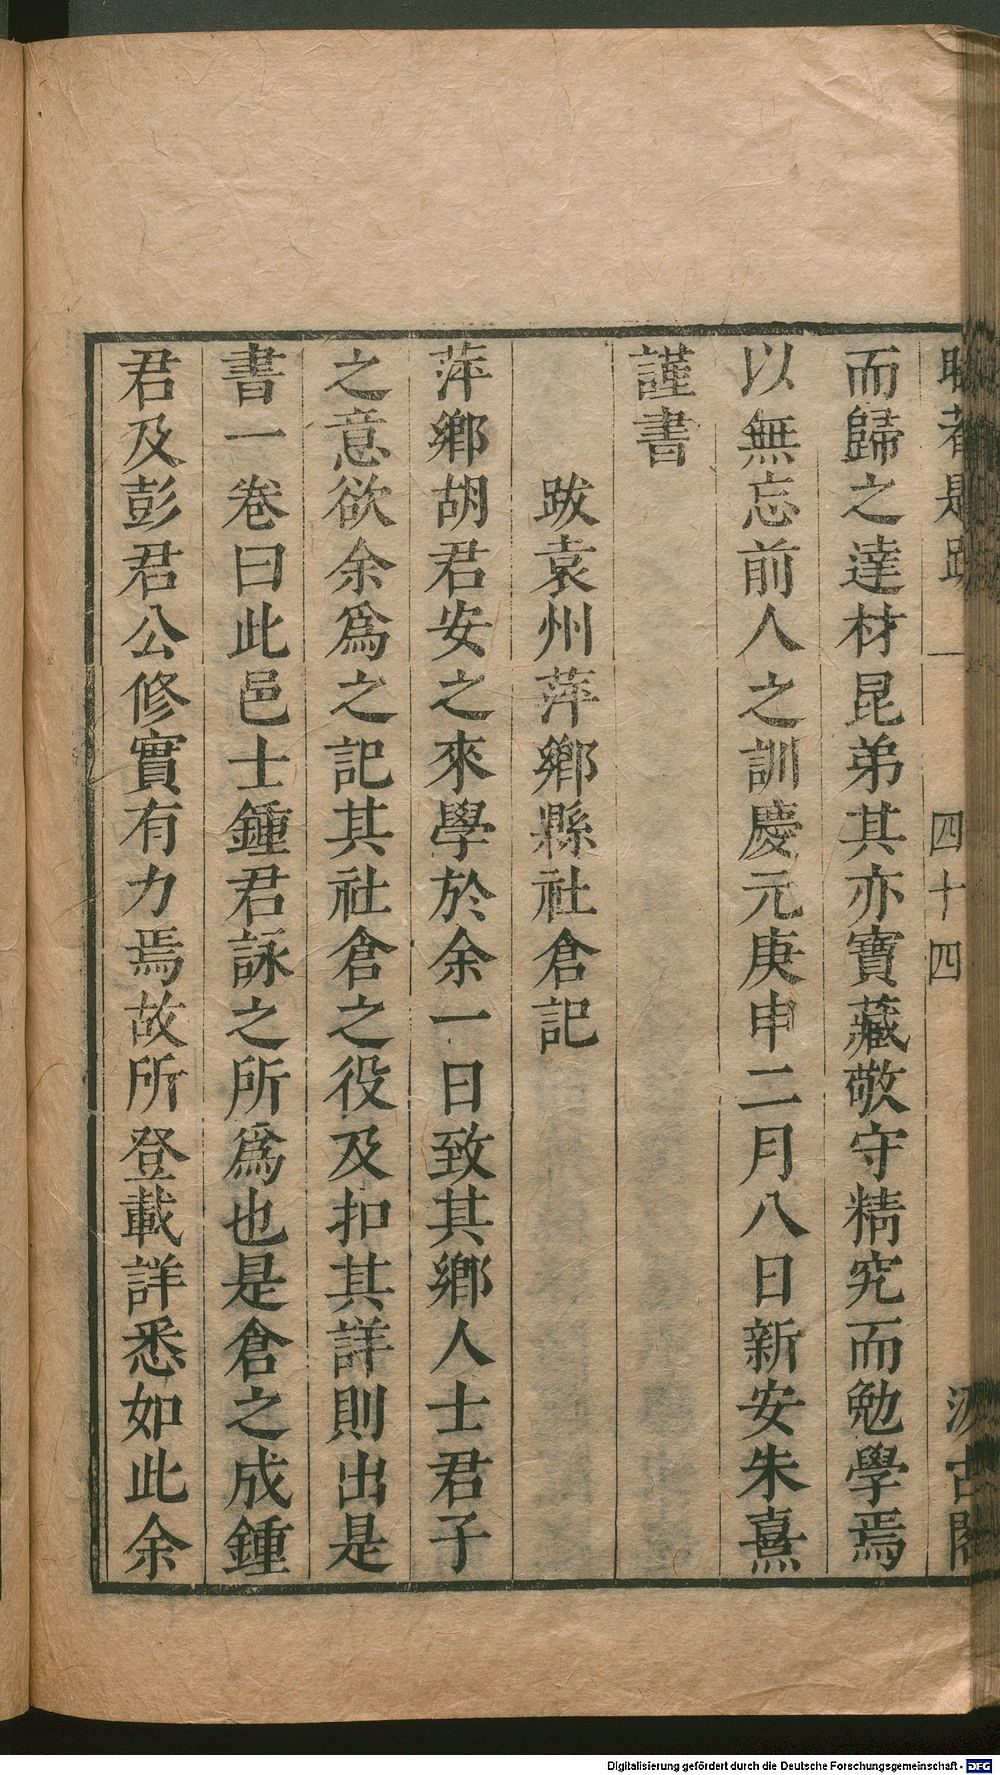 四十四
而歸之達材昆弟其亦寶藏敬守精究而勉學焉
以無忘前人之訓慶元庚申二月八日新安朱熹
謹書
跋袁州萍鄉縣社倉記
萍鄉胡君安之來學於余一日致其鄉人士君子
之意欲余爲之記其社倉之役及扣其詳則出是
書一卷曰此邑士鍾君詠之所爲也是倉之成鍾
君及彭君公修實有力焉故所登載詳悉如此余
Digitalisierung gefördert durch die Deutsche Forschungsgemeinschaft - DFG